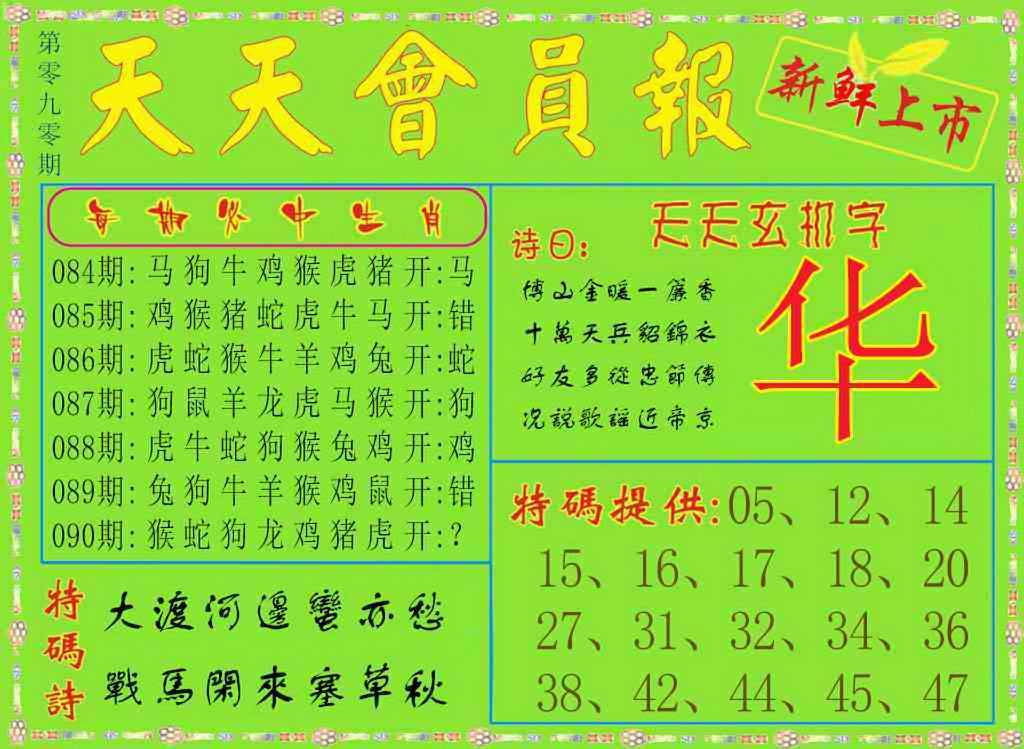 第零九零期
天天會員報
新鮮上市
每期必中生肖
084期: 马狗牛鸡猴虎猪开:马
085期: 鸡猴猪蛇虎牛马开:错
086期: 虎蛇猴牛羊鸡兔开:蛇
087期: 狗鼠羊龙虎马猴开:狗
088期: 虎牛蛇狗猴兔鸡开:鸡
089期: 兔狗牛羊猴鸡鼠开:错
090期: 猴蛇狗龙鸡猪虎开:?
特碼詩
大渡河邊蠻亦愁
戰馬閑來塞草秋
天天玄机字
诗曰:
博山金暖一簾香
十萬天兵貂錦衣
好友多從忠節傳
况説歌謡近帝京
华
特碼提供:05、12、14
15、16、17、18、20
27、31、32、34、36
38、42、44、45、47